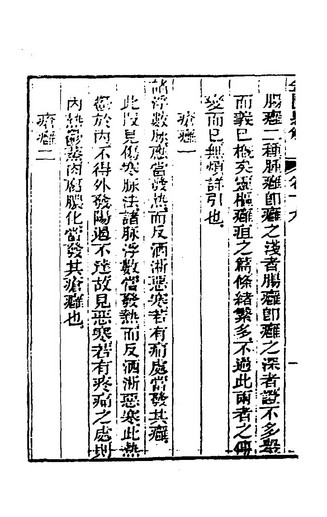 腸癰二種肺癰即癰之淺者腸癰即癰之深者證不多數
而義已概矣靈樞癰疽之篇條緒繁多不過此兩者之傳
變而已無煩詳引也
瘡癰一
諸浮數脈應當發熱而反洒淅惡寒若有痛處當發其癰
此段見傷寒脈法諸脈浮數當發熱而反洒淅惡寒此熱
鬱於內不得外發陽遏不達故見惡寒若有疼痛之處則
內熱鬱蒸肉腐膿化當發其瘡癰也
瘡癰二